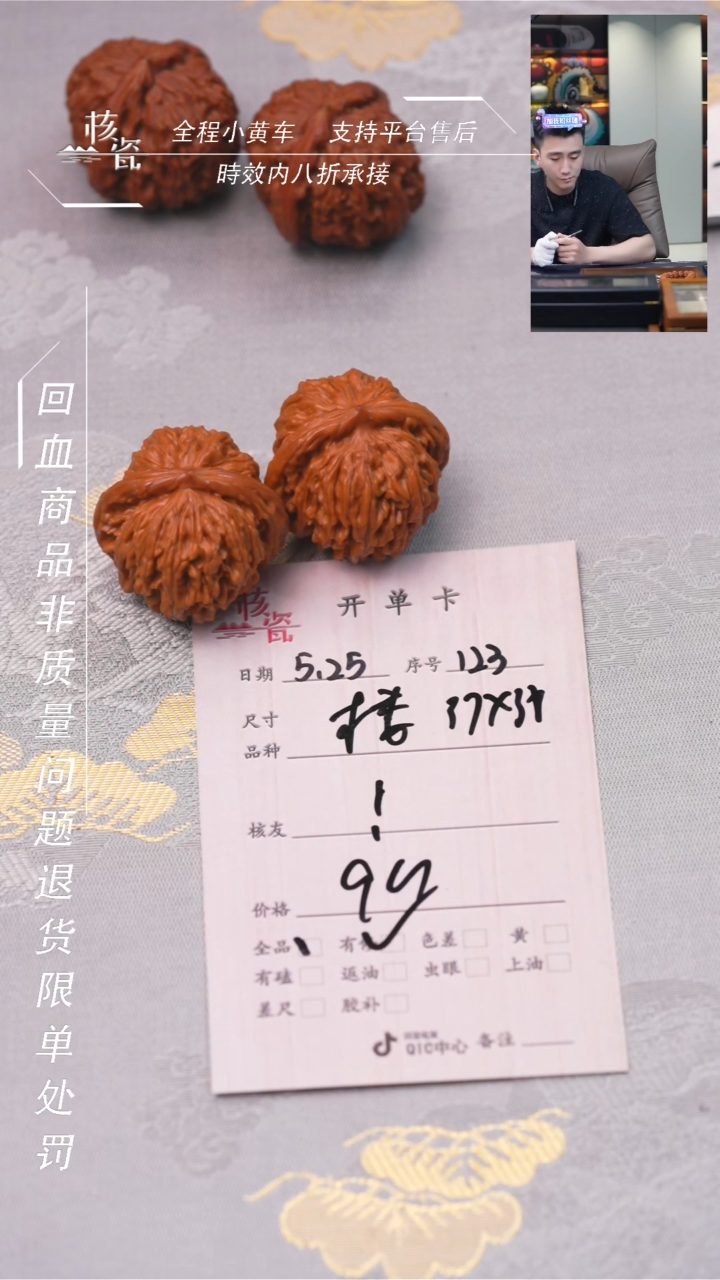 核瓷
全程小黄车 支持平台售后
時效内八折承接
回血商品非质量问题退货限单处罚
核瓷
开单卡
日期 5.25 序号 123
尺寸
品种
核友
价格
全品 有 色差 黄
有磕 返油 虫眼 上油
差尺 胶补
QIC中心 备注